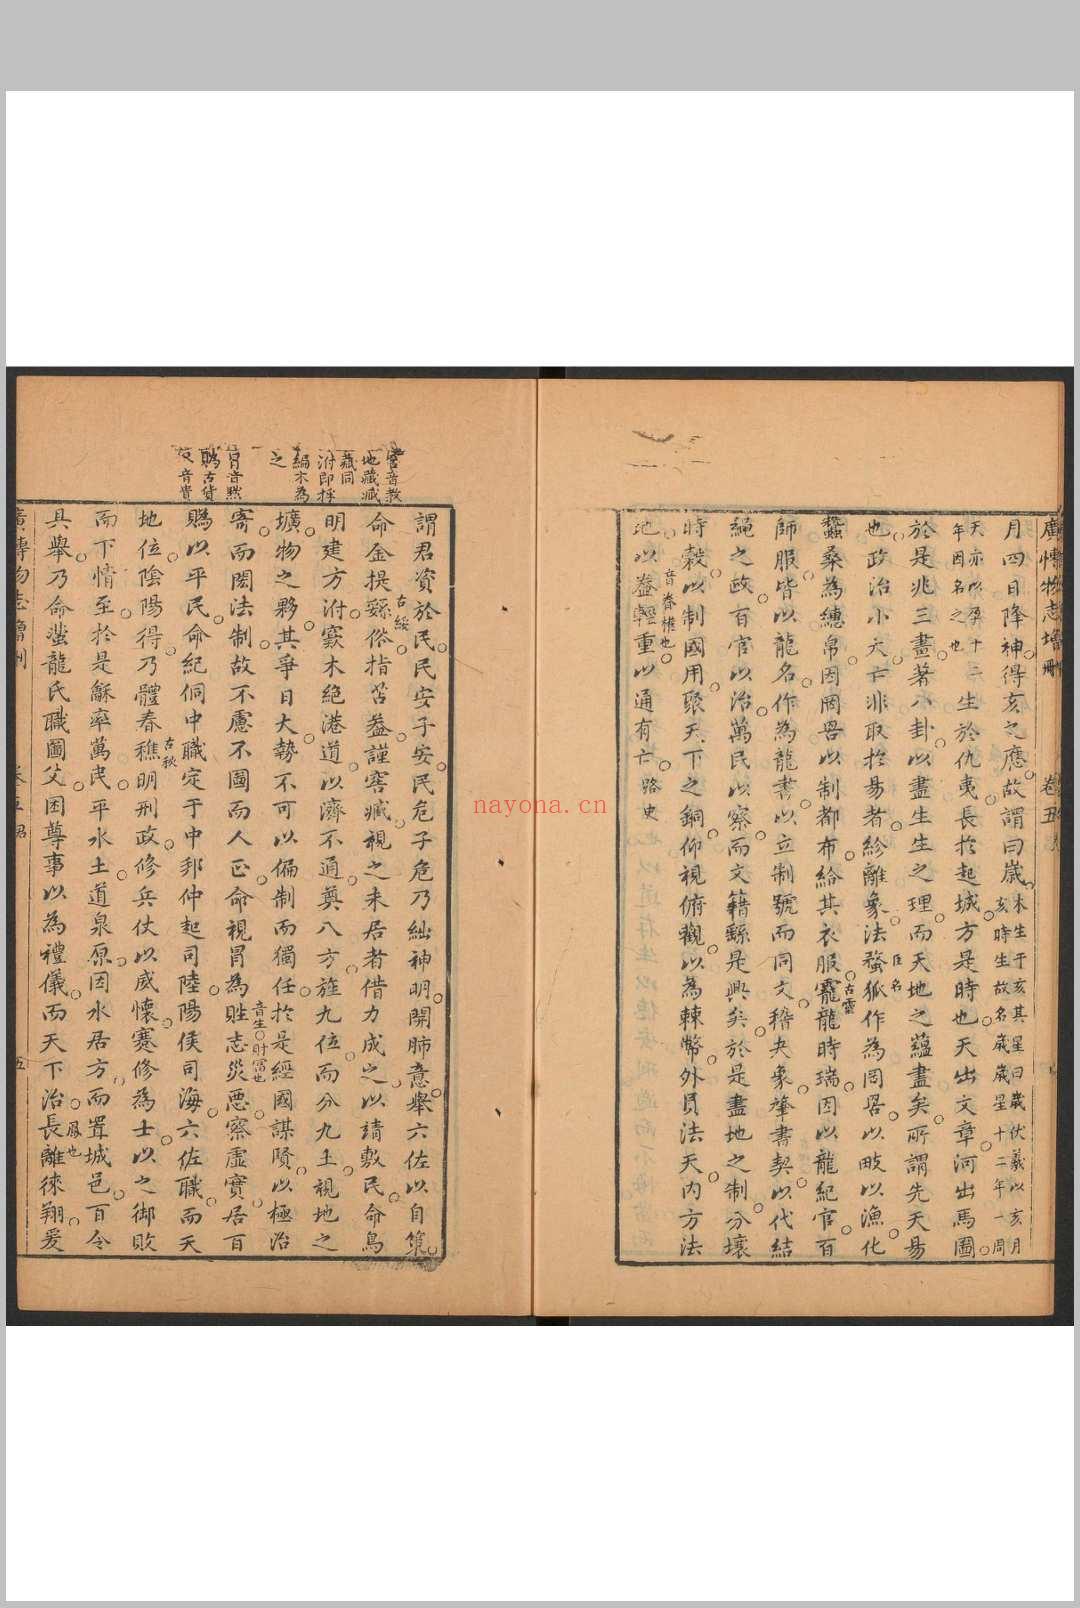 廣博物志增刪 卷五
月四日降神得亥之應故謂曰歲木生于亥其星曰歲伏羲以亥月
天亦以孕十二年因名之也生於仇夷長於起城方是時也天出文章河出馬圖
亥時生故名歲歲星十二年一周
於是兆三畫著八卦以盡生生之理而天地之蘊盡矣所謂先天易
也政治小大亡非取於易者紾離象法蝥狐作為罔罟以畋以漁化
臣名
蠶桑為繐帛因罔罟以制都布給其衣服龗龍時瑞因以龍紀官百
古靈
師服皆以龍名作為龍書以立制號而同文稽夬象肇書契以代結
繩之政百官以治萬民以察而文籍繇是興矣於是盡地之制分壤
時穀以制國用聚天下之銅仰視俯觀以為棘幣外員法天內方法
地以益輕重以通有亡路史
音眷權也
窖音教
地藏臧藏同
泭即桴
編木為之
冒音默
賵古貨
反音貴
謂君資於民民安子安民危子危乃紬神明開肺意舉六佐以自策
命金提繇俗指苦益謹窖臧視之未居者借力成之以靖敷民命鳥
古綏
明建方泭窾木絕港道以濟不通奠八方旌九位而分九土視地之
壙物之夥其爭日大勢不可以偏制而獨任於是經國謀賢以極治
寄而閎法制故不慮不圖而人正命視冒為貹志災惡察虛實居百
音生財富也
賵以平民命紀侗中職定于中邦仲起司陸陽侯司海六佐職而天
地位陰陽得乃體春穛明刑政修兵仗以威懷蹇修為士以之御敗
古秋
而下情至於是龢率萬民平水土道泉原因水居方而置城邑百令
具舉乃命蜚龍氏職圖父因尊事以為禮儀而天下治長離徠翔爰
鳳也
廣博物志增刪 卷五 五
nayona.cn